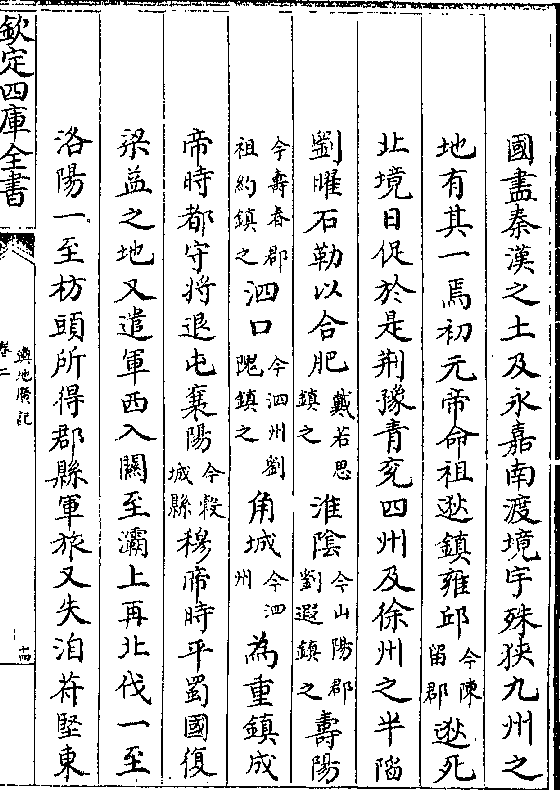 國盡秦漢之土及永嘉南渡境宇殊狹九州之
地有其一焉初元帝命祖逖鎮雍邱今陳留郡逖死
北境日促於是荆豫青兖四州及徐州之半陷
劉曜石勒以合肥戴若思鎮之淮陰今山陽郡劉遐鎮之壽陽
今壽春郡祖約鎮之泗口今泗州劉隗鎮之角城今泗州為重鎮成
帝時都守將退屯襄陽今榖城縣穆帝時平蜀國復
梁益之地又遣軍西入關至灞上再北伐一至
洛陽一至枋頭所得郡縣軍旅又失洎苻堅東
欽定四庫全書
輿地廣記
卷二
十四